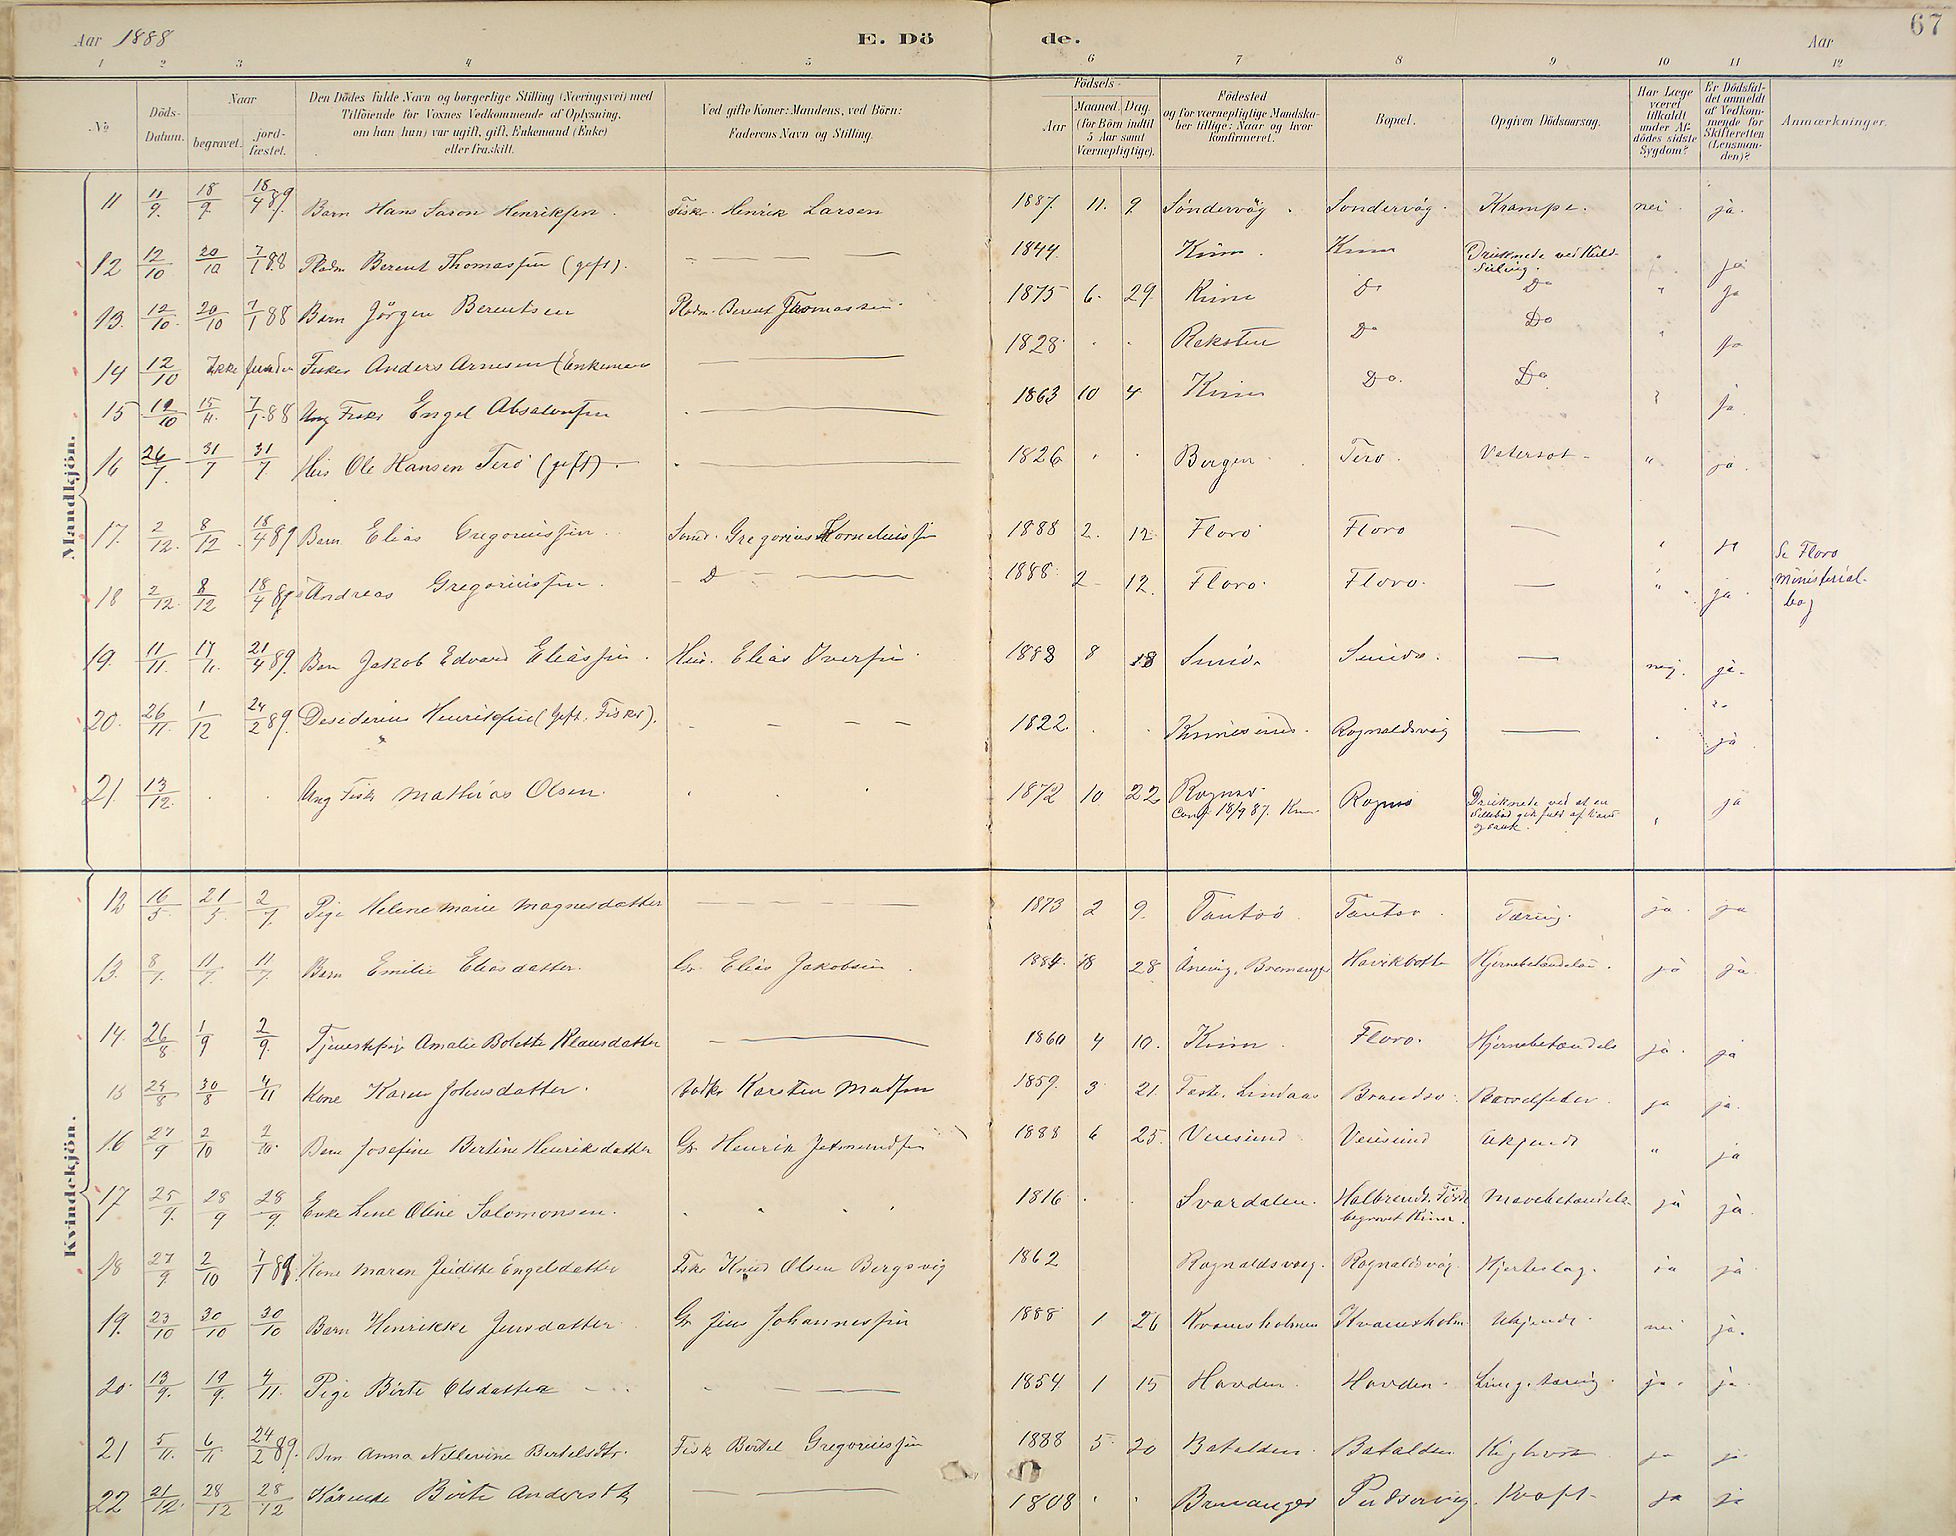 67
Aar 1888 E. Dö de. Aar
1 2 3 4 5 6 7 8 9 10 11 12
No
Döds-Datum.
Naar
begravet.
jord-fæstet.
Den Dödes fulde Navn og borgerlige Stilling (Næringsvei) med
Tilföiende for Voxnes Vedkommende af Oplysning,
om han (hun) var ugift, gift, Enkemand (Enke)
eller fraskilt.
Ved gifte Koner: Mandens, ved Börn:
Faderens Navn og Stilling.
Födsels-
Aar
Maaned. Dag.
(for Börn indtil
5 Aar samt
Værnepligtige).
Födested
og for værnepligtige Mandska-
ber tillige: Naar og hvor
konfirmeret.
Bopæl.
Opgiven Dödsaarsag.
Har Læge
været
tilkaldt
under Af-
dödes sidste
Sygdom?
Er Dödsfal-
det anmeldt
af Vedkom-
mende for
Skifteretten
(Lensman-
den)?
Anmærkninger.
Mandkjön.
11 11/9. 18/9 18/4 89. Barn Hans Henriksen. Fisk. Henrik Larsen 1887. 11. 9. Söndervåg. Sondervåg. Krampe. nei. ja.
12 12/10 20/10 7/1 88 Pladm Berent Thomassen (gift). 1844. Kinn. Kinn Druknede ved Kuld-
seiling. " ja
13. 12/10. 20/10 7/1 88 Barn Jörgen Berentsen Pladm. Berent Thomassen. 1875 6. 29. Kinn Do Do " ja
14 12/10 Ikke funden Fisker Anders Arnesen (Enkeman 1828 Reksten Do Do " ja
15 12/10 15/11. 7/1 88 Ung Fisker Engel Absalonsen 1863 10 4. Kinn Do. Do " ja.
16 26/7. 31/7 31/7. Hus Ole Hansen Terö (gift). 1826 Bergen Terö. Vatersot " ja.
17. 2/12. 8/12. 18/4 89 Barn Elias Gregoriussen Smed. Gregorius Korneliussen 1888 2. 12. Florö Florö — " ja Se Florö
Ministerial-
bog
18 2/12. 8/12 18/4 89 Andreas Gregoriussen. D 1888. 2 12. Florö. Florö. — " ja.
19. 11/11. 17/11. 21/4 89. Barn Jakob Edvard Eliassen. Hus. Elias Iversen. 1888 8 18 — nej. ja.
20. 26/11. 1/12 24/2 89. Desiderius Henriksen (Gift. Fisker). 1822. Rognaldsvåg — ja
21. 13/12. Ung Fisk Mathias Olsen. 1872 10 22 Rognö.
Conf 18/9 87. Kinn Rognö Druknede ved at en
Sildebåd gik fuld af Vand
og sank. " ja
Kvindekjön.
12 16/5. 21/5. 2/7. Pige Helene Marie Magnesdatter 1873 2 9. Tansö. Tansö. Tæring. ja. ja
13. 8/7. 11/7 11/7. Barn Emilie Eliasdatter. Gr. Elias Jakobsen. 1884. 8 28 Bremanger Havikbotn Hjernebetændelse. ja ja.
14. 26/8. 1/9 2/9. Tjenestepige Amalie Bolette Klausdatter 1860 4 10. Kinn. Florö. Hjernebetændels ja. ja
15 24/8 30/8 4/11 Kone Karen Johnsdatter. Karsten Madsen 1859. 3 21. Lindaas Brandsö. Barselfeber. ja ja.
16 27/9 2/10 2/10. Barn Josefine Bertine Henriksdatter Gr Henrik 1888 6 25. Veiesund. Veiesund Ukjendt " ja
17 25/9. 28/9 28/9 Enke Lene Oline Salomonsen. 1816 Svardalen. Halbrendt, Förde
begravet Kinn. Mavebetændels ja ja.
18 27/9. 2/10 7/1 89. Kone Maren Juditte Engelsdatter Fisk Knud Olsen Bergsvig 1862 Rognaldsvaag. Rognaldsvåg. Hjerteslag. ja ja
19. 23/10 30/10 30/10 Barn Henrikke Jensdatter. Gr Jens Johannessen 1888 1 26 Kvansholmen Kvansholm Ukjendt. nei ja.
20. 13/9. 19/9. 4/11. Pige Birte Olsdatter 1854 1 15 Hovden. Hovden. Lungetæring. ja. ja.
21 5/11. 6/11 24/2 89. Barn Anna Nellevine Bertelsdtr. Fisk Bertel Gregoriussen 1888 5. 20 Batalden. Batalden Kighoste ja ja
22 21/12. 28/12 28/12 Kårenke Birte Andersdtr 1808 Bremanger Pudservig. Kræft. ja ja